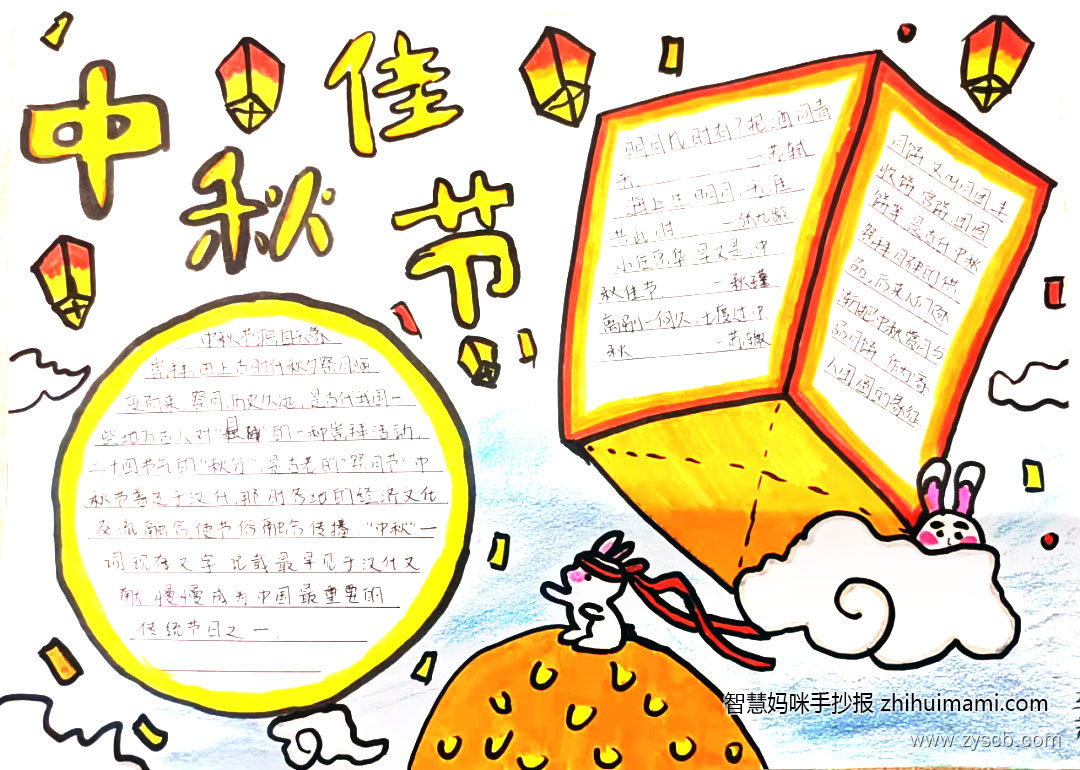 中秋佳节
中秋节源自天象
崇拜,由上古时代秋夕祭月演
变而来.祭月,历史久远,是古代我国一
些地方古人对“月神”的一种崇拜活动,
二十四节气的“秋分”,是古老的“祭月节”中
秋节普及于汉代,那时各地的经济文化
交流融合使节俗融合传播.“中秋”一
词现存文字记载最早见于汉代文
献,慢慢成为中国最重要的
传统节日之一.
明月几时有?把酒问青
天. —苏轼
海上生明月,天涯
共此时 —张九龄
小住京华,早又是,中
秋佳节. —秋瑾
离别一何久,七度过中
秋 —苏辙
月饼又叫月团、丰
收饼、宫饼、团圆
饼等是古代中秋
祭拜月神的供
品,后来人们逐
渐把中秋赏月与
品月饼,作为家
人团圆的象征
智慧妈咪手抄报 zhihuimami.com
www.zyscb.com